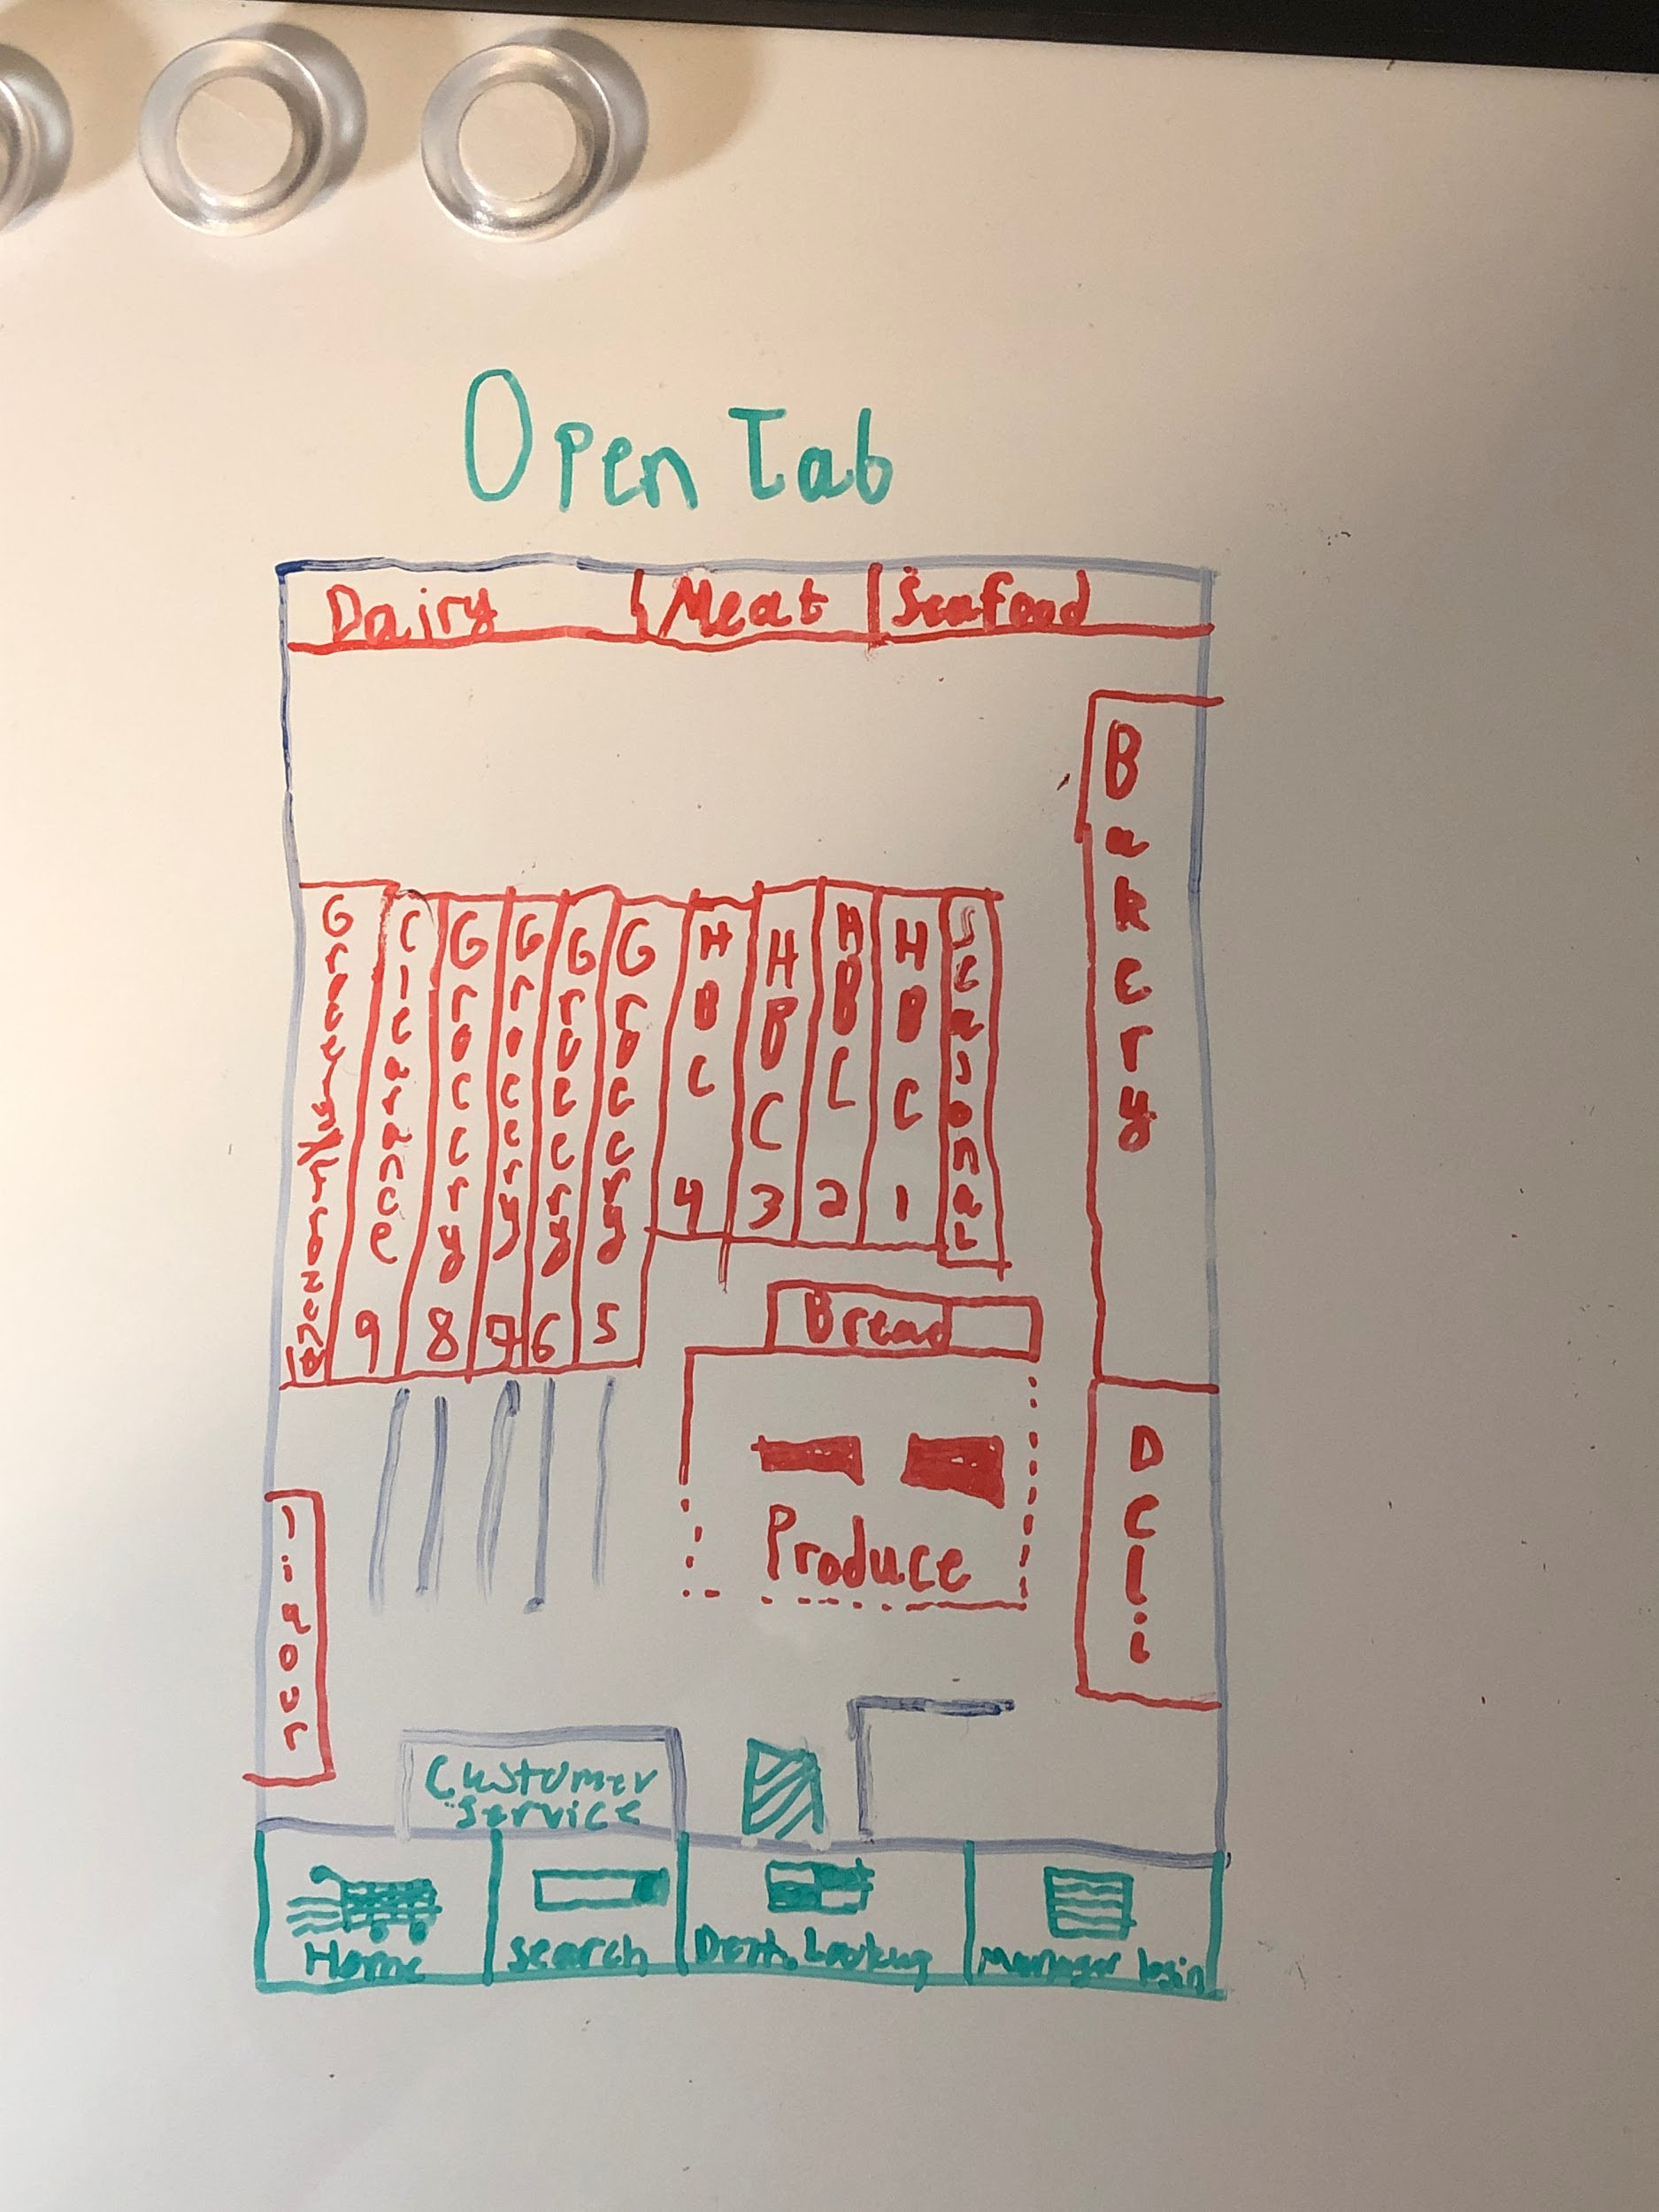 Open Tab
Dairy
Meat
Seafood
Bakery
Clearance 9
Grocery 8
Grocery 7
Grocery 6
Grocery 5
HBC 4
HBC 3
HBC 2
HBC 1
Seasonal
Bread
Produce
Deli
liquor
Customer
Service
Home
search
Manager login